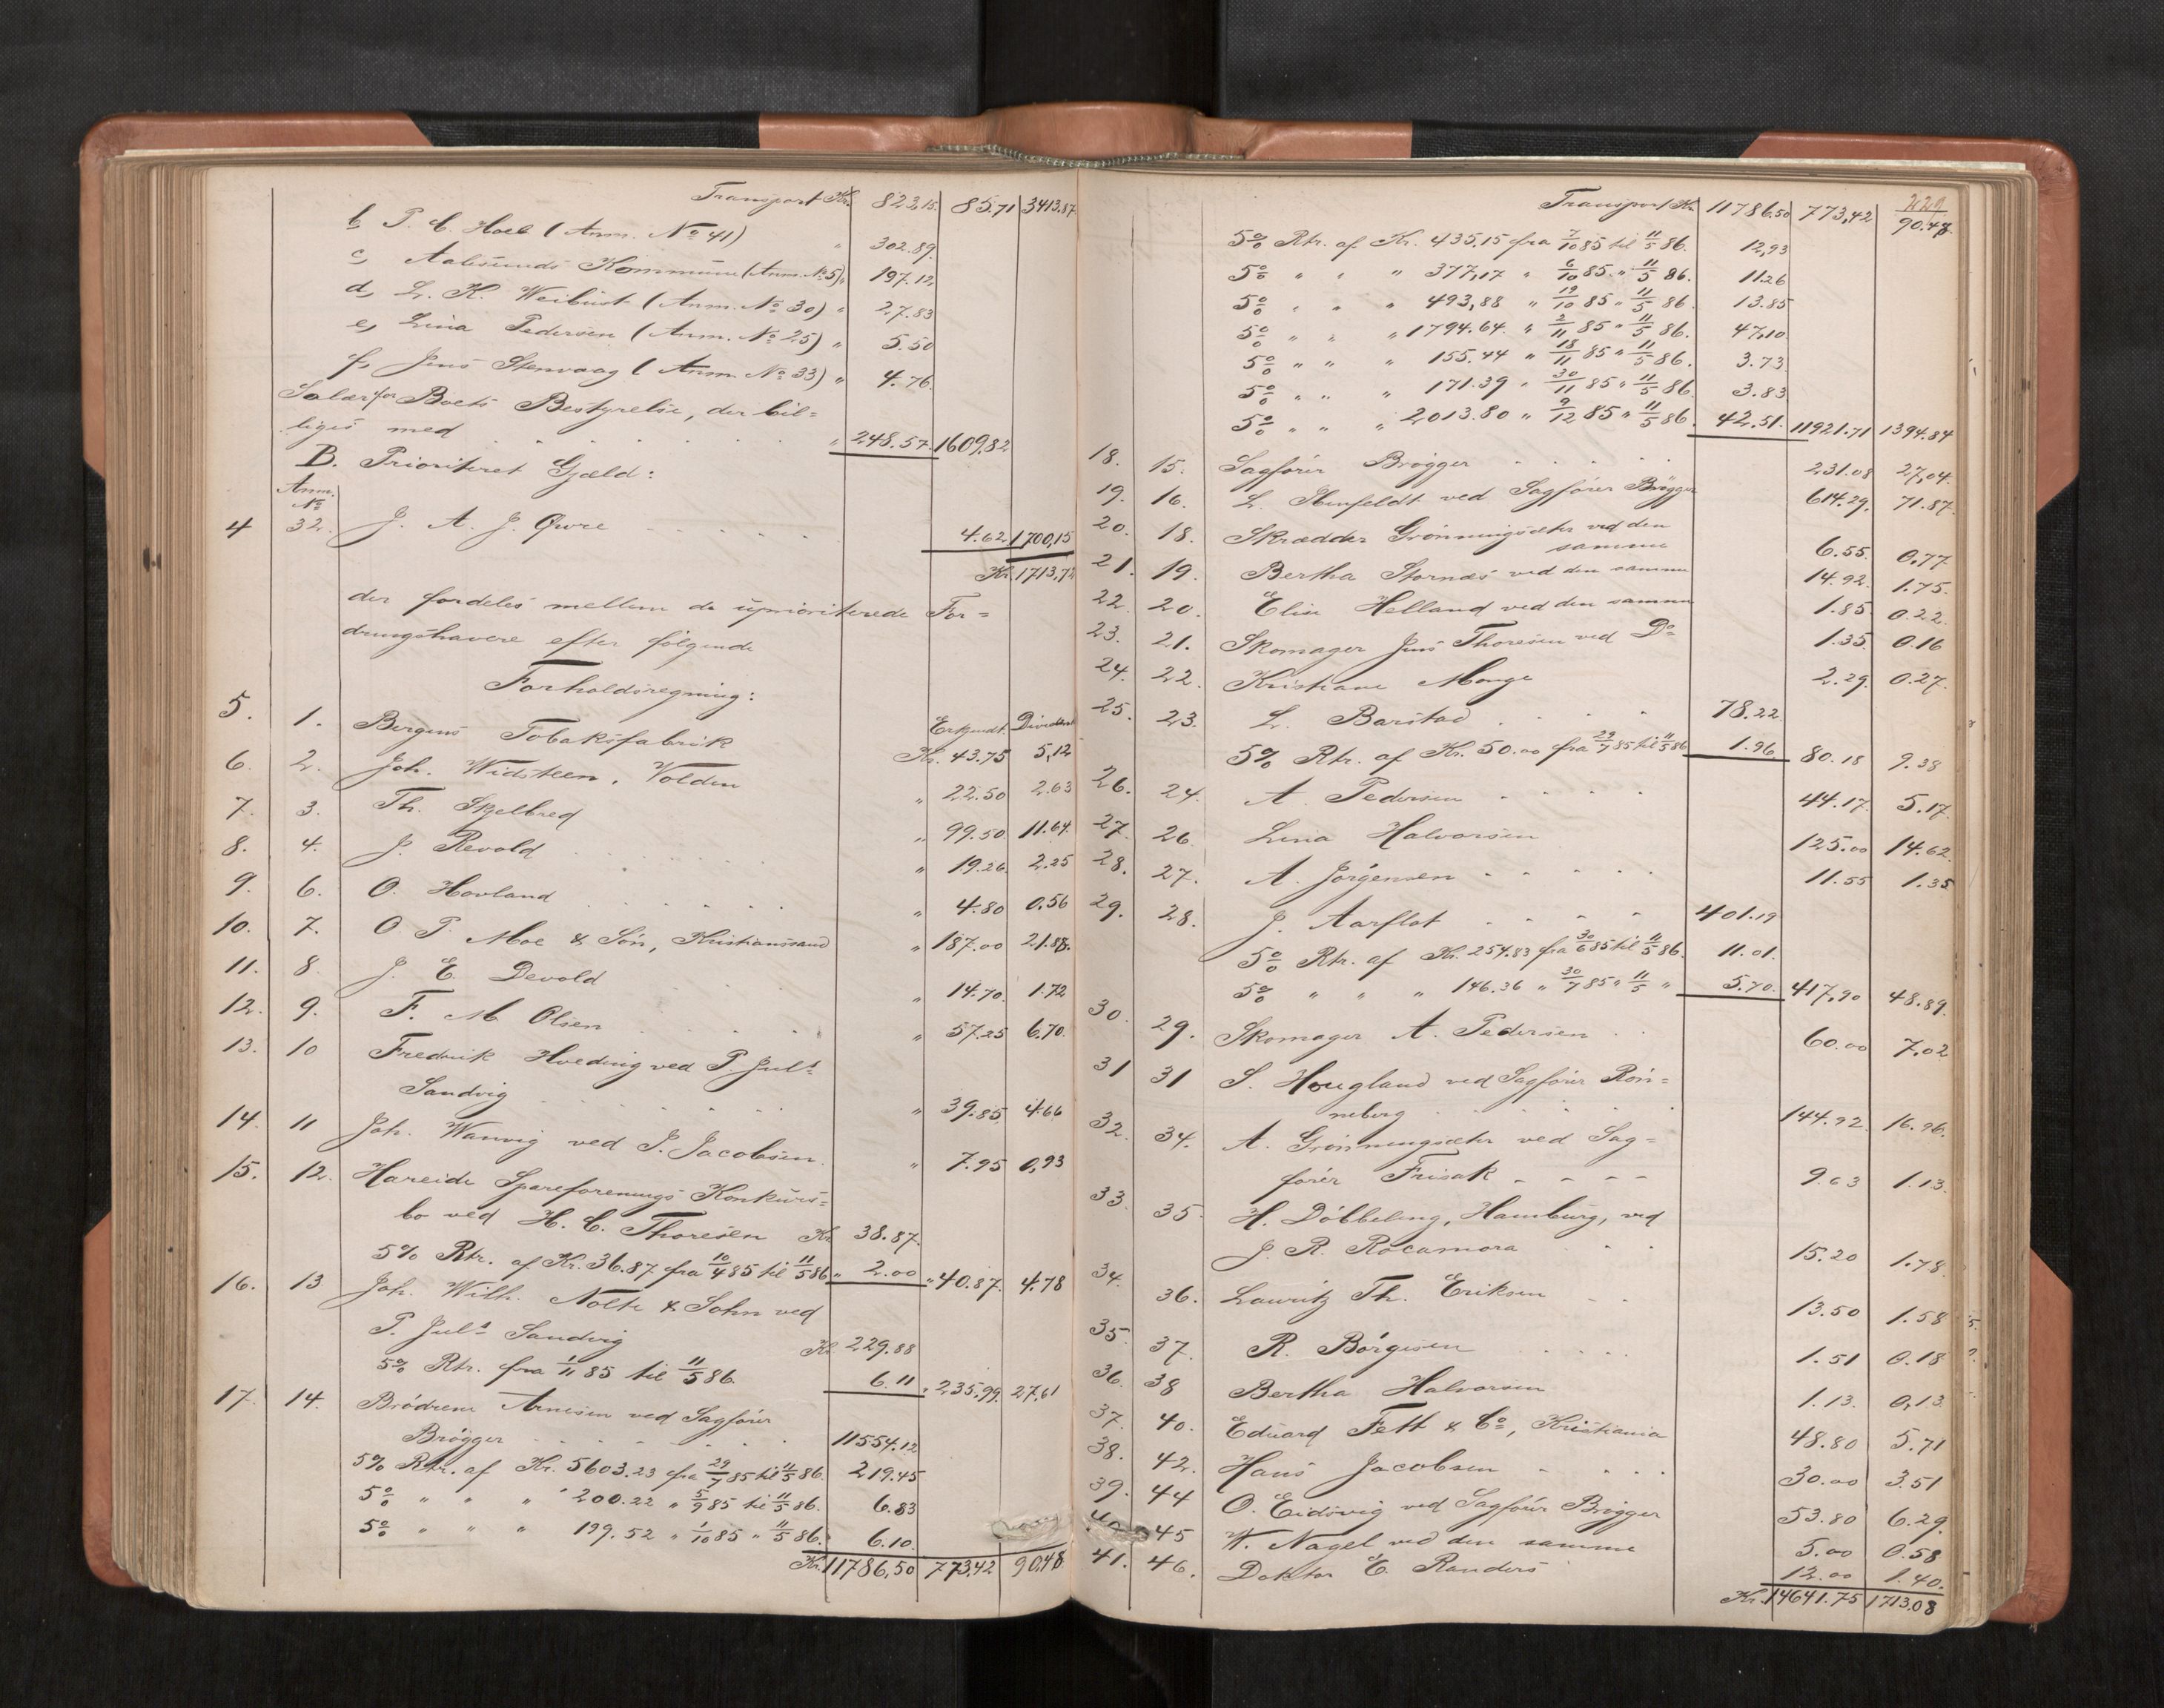 Transport Kr. 823,15. 85.71 3413.87
b, P. C. Hoel (Anm. No 41) " 302.89.
c, Aalesunds Kommune (Anm. No 5) " 197.12
d, L. K. Weibust (Anm. No 30) " 27.83
e, Lina Pedersen (Anm. No 25) " 5.50
f, Jens Stenvaag (Anm. No 33) " 4.76.
Salær for Boets Bestyrelse, der bil-
liges med " 248.57. 1609,82
B. Prioriteret Gjæld:
Anm.
No
4 32. J. A. J. Qwre 4.62 1700,15
Kr. 1713,72
der fordeles mellem de uprioriterede For-
dringshavere efter følgende
Forholdsregning:
Erkjendt. Dividende
5. 1. Bergens Tobaksfabrik Kr. 43.75 5,12
6. 2. Joh. Widsteen, Volden " 22.50 2.63
7. 3. Th. Skjelbred " 99.50 11.64.
8. 4. J. Revold " 19.26. 2.25
9. 6. O. Hovland " 4.80 0.56
10. 7. O. P. Moe & Søn, Kristianssand " 187.00 21.88.
11. 8 J. E. Devold " 14.70. 1.72
12. 9. F. M. Olsen " 57.25 6.70.
13. 10 Fredrik Hveding ved P. Juls
Sandvig " 39.85 4.66
14. 11 Joh. Wanvig ved J. Jacobsen " 7.95 0,93
15. 12. Hareide Spareforenings Konkurs-
bo ved H. C. Thoresen Kr. 38.87.
5% Rtr. af Kr. 36.87 fra 10/4 85 til 11/5 86 " 2.00 " 40.87. 4.78
16. 13 Joh. Wilh. Nolte & Sohn ved
P. Juls Sandvig Kr. 229.88
5% Rtr. fra 1/11 85 til 11/5 86. 6.11 " 235.99. 27,61
17. 14. Brødrene Arnesen ved Sagfører
Brøgger 11554.12
5% Rtr. af Kr. 5603.23 fra 29/7 85 til 11/5 86. 219.45
5% " " " 200.22 " 5/9 85 til 11/5 86. 6.83
5% " " " 199.52 " 1/10 85 " 11/5 86. 6.10.
Kr. 11786,50 773,42 90,48
229
Transport Kr. 11786.50 773,42 90.48.
5% Rtr. af Kr. 435.15 fra 7/10 85 til 11/5 86. 12,93
5% " " " 377,17 " 6/10 85 " 11/5 86. 11.26
5% " " " 493,88 " 19/10 85 " 11/5 86. 13.85
5% " " " 1794.64. " 2/11 85 " 11/5 86. 47,10
5% " " " 155.44 " 18/11 85 " 11/5 86. 3.73.
5% " " " 171.39 " 30/11 85 " 11/5 86 3.83
5% " " " 2013.80 " 9/12 85 " 11/5 86. 42,51. 11921.71 1394.84
18. 15. Sagfører Brøgger 231.08 27,04.
19. 16. L. Ilenfeldt ved Sagfører Brøgger 614.29. 71.87.
20. 18. Skrædder Grönningsæter ved den
samme 6.55. 0.77
21. 19. Bertha Stornæs ved den samme 14.92. 1.75.
22. 20. Elise Helland ved den samme 1.85 0.22.
23. 21. Skomager Jens Thoresen ved Do 1.35. 0.16
24. 22. Kristiane Monge 2.29. 0.27.
25. 23. L. Barstad 78.22
5% Rtr. af Kr. 50.00 fra 29/7 85 til 11/5 86 1.96. 80.18 9.38
26. 24. A. Pedersen 44.17. 5.17.
27. 26 Lina Halvorsen 125.00 14.62.
28. 27. A. Jørgensen 11.55 1.35
29. 28. J. Aarflot 401.19
5% Rtr. af Kr. 254.83 fra 30/6 85 til 11/5 86. 11.01.
5% " " " 146.36 " 30/7 85 " 11/5 " 5.70. 417,90 48.89.
30. 29. Skomager A. Pedersen 60.00 7,02
31 31 S. Hougland ved Sagfører Røn-
neberg 144.92. 16.96.
32. 34. A. Grønningsæter ved Sag-
fører Frisak 9.63 1.13.
33. 35. H. Döbbeling, Hamburg, ved
J. R. Rocamora 15.20 1.78.
34. 36. Lauritz Th. Eriksen 13.50 1.58
35. 37. R. Börgesen 1.51 0.18
36. 38 Bertha Halvorsen 1.13. 0,13.
37. 40. Eduard Fett & Co, Kristiania 48.80 5.71
38. 42. Hans Jacobsen 30.00 3.51
39. 44 O. Eidsvig ved Sagfører Brøgger 53.80 6.29.
40. 45 W. Nagel ved den samme 5.00 0.58
41. 46. Doktor E. Randers 12.00 1.40.
Kr. 14641.75 1713,08